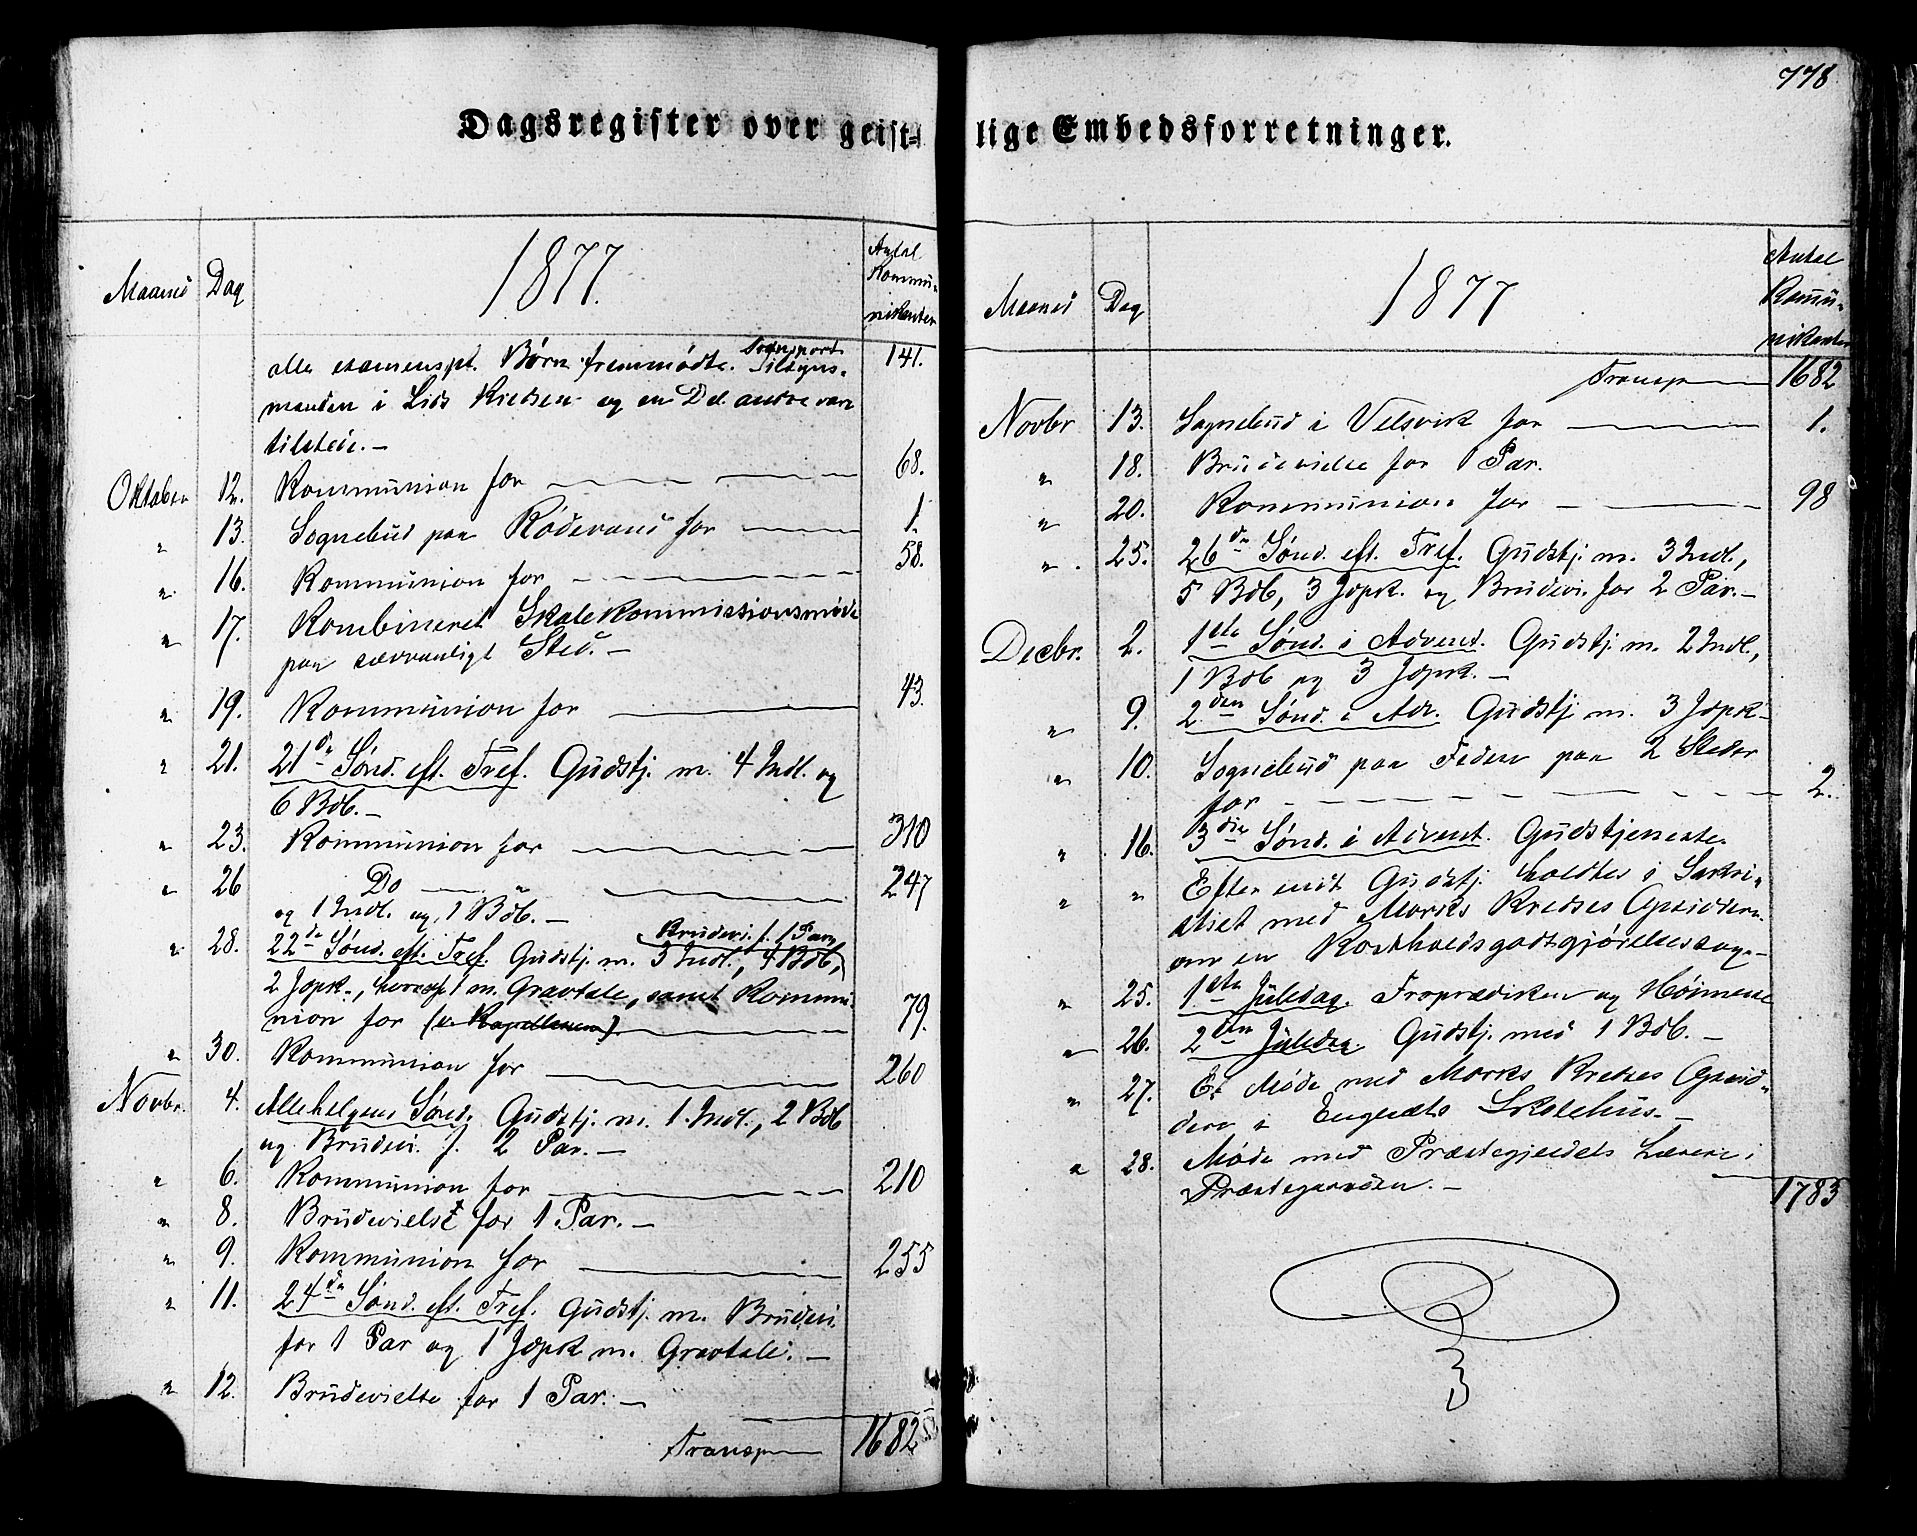 778
Dagsregister over geist-lige Embedsforretninger.
Maaned Dag 1877. Antal Kommunikanter
alle examenspl. Børn fremmødte. Transport 141.
Tilsyns-
manden i Lids Kredsen og en Del andre vare
tilstede. —
Oktober 12. Kommunion for 68.
" 13. Sognebud paa Rødevand for 1.
" 16. Kommunion for 58.
" 17. Kombineret Skolekommissionsmøde
paa sædvanligt Sted. —
" 19. Kommunion for 43.
" 21. 21de Sønd. eft. Tref. Gudstj. m. 4 Indl. og
6 Bdb. —
" 23. Kommunion for 310
" 26 Do " 247
og 1 Indl. og 1 Bdb. —
Brudevi. f. 1 Par,
" 28. 22de Sønd. eft. Tref. Gudstj. m. 3 Indl., 4 Bdb,
2 Jopk., hvoraf 1 m. Gravtale, samt Kommu-
nion for (v. Kapellanen) 79.
" 30. Kommunion for 260
Novbr. 4. Allehelgens Sønd. Gudstj. m. 1 Indl., 2 Bdb
og Brudevi. f. 2 Par. —
" 6. Kommunion for 210
" 8. Brudevielse for 1 Par. —
" 9. Kommunion for 255
" 11. 24de Sønd. eft. Tref. Gudstj. m. Brudevi.
for 1 Par og 1 Jopk m. Gravtale. —
" 12. Brudevielse for 1 Par. —
Transp 1682
Maaned Dag 1877 Antal Kommunikanter
Transp 1682
Novbr 13. Sognebud i Velsvik for 1.
" 18. Brudevielse for 1 Par.
" 20. Kommunion for 98
" 25. 26de Sønd. eft. Tref. Gudstj. m. 3 Indl.,
5 Bdb, 3 Jopk. og Brudevi. for 2 Par. —
Decbr. 2. 1ste Sønd. i Advent. Gudstj. m. 2 Indl.,
1 Bdb og 3 Jopk. —
" 9. 2den Sønd. i Adv. Gudstj m. 3 Jopk —
" 10. Sognebud paa Feden paa 2 Steder
for 2.
" 16. 3die Sønd. i Advent. Gudstjeneste.
" " Efter endt Gudstj. holdtes i Sakri-
stiet med Morks Kredses Opsiddere
om en Kostholdsgodtgjørelsessag. —
" 25. 1ste Juledag. Froprædiken og Høimesse
" 26. 2den Juledag Gudstj. med 1 Bdb. —
" 27. Et Møde med Morks Kredses Opsid-
dere i Engesæts Skolehus. —
" 28. Møde med Præstegjeldets Lærere i
Præstegaarden. — 1783